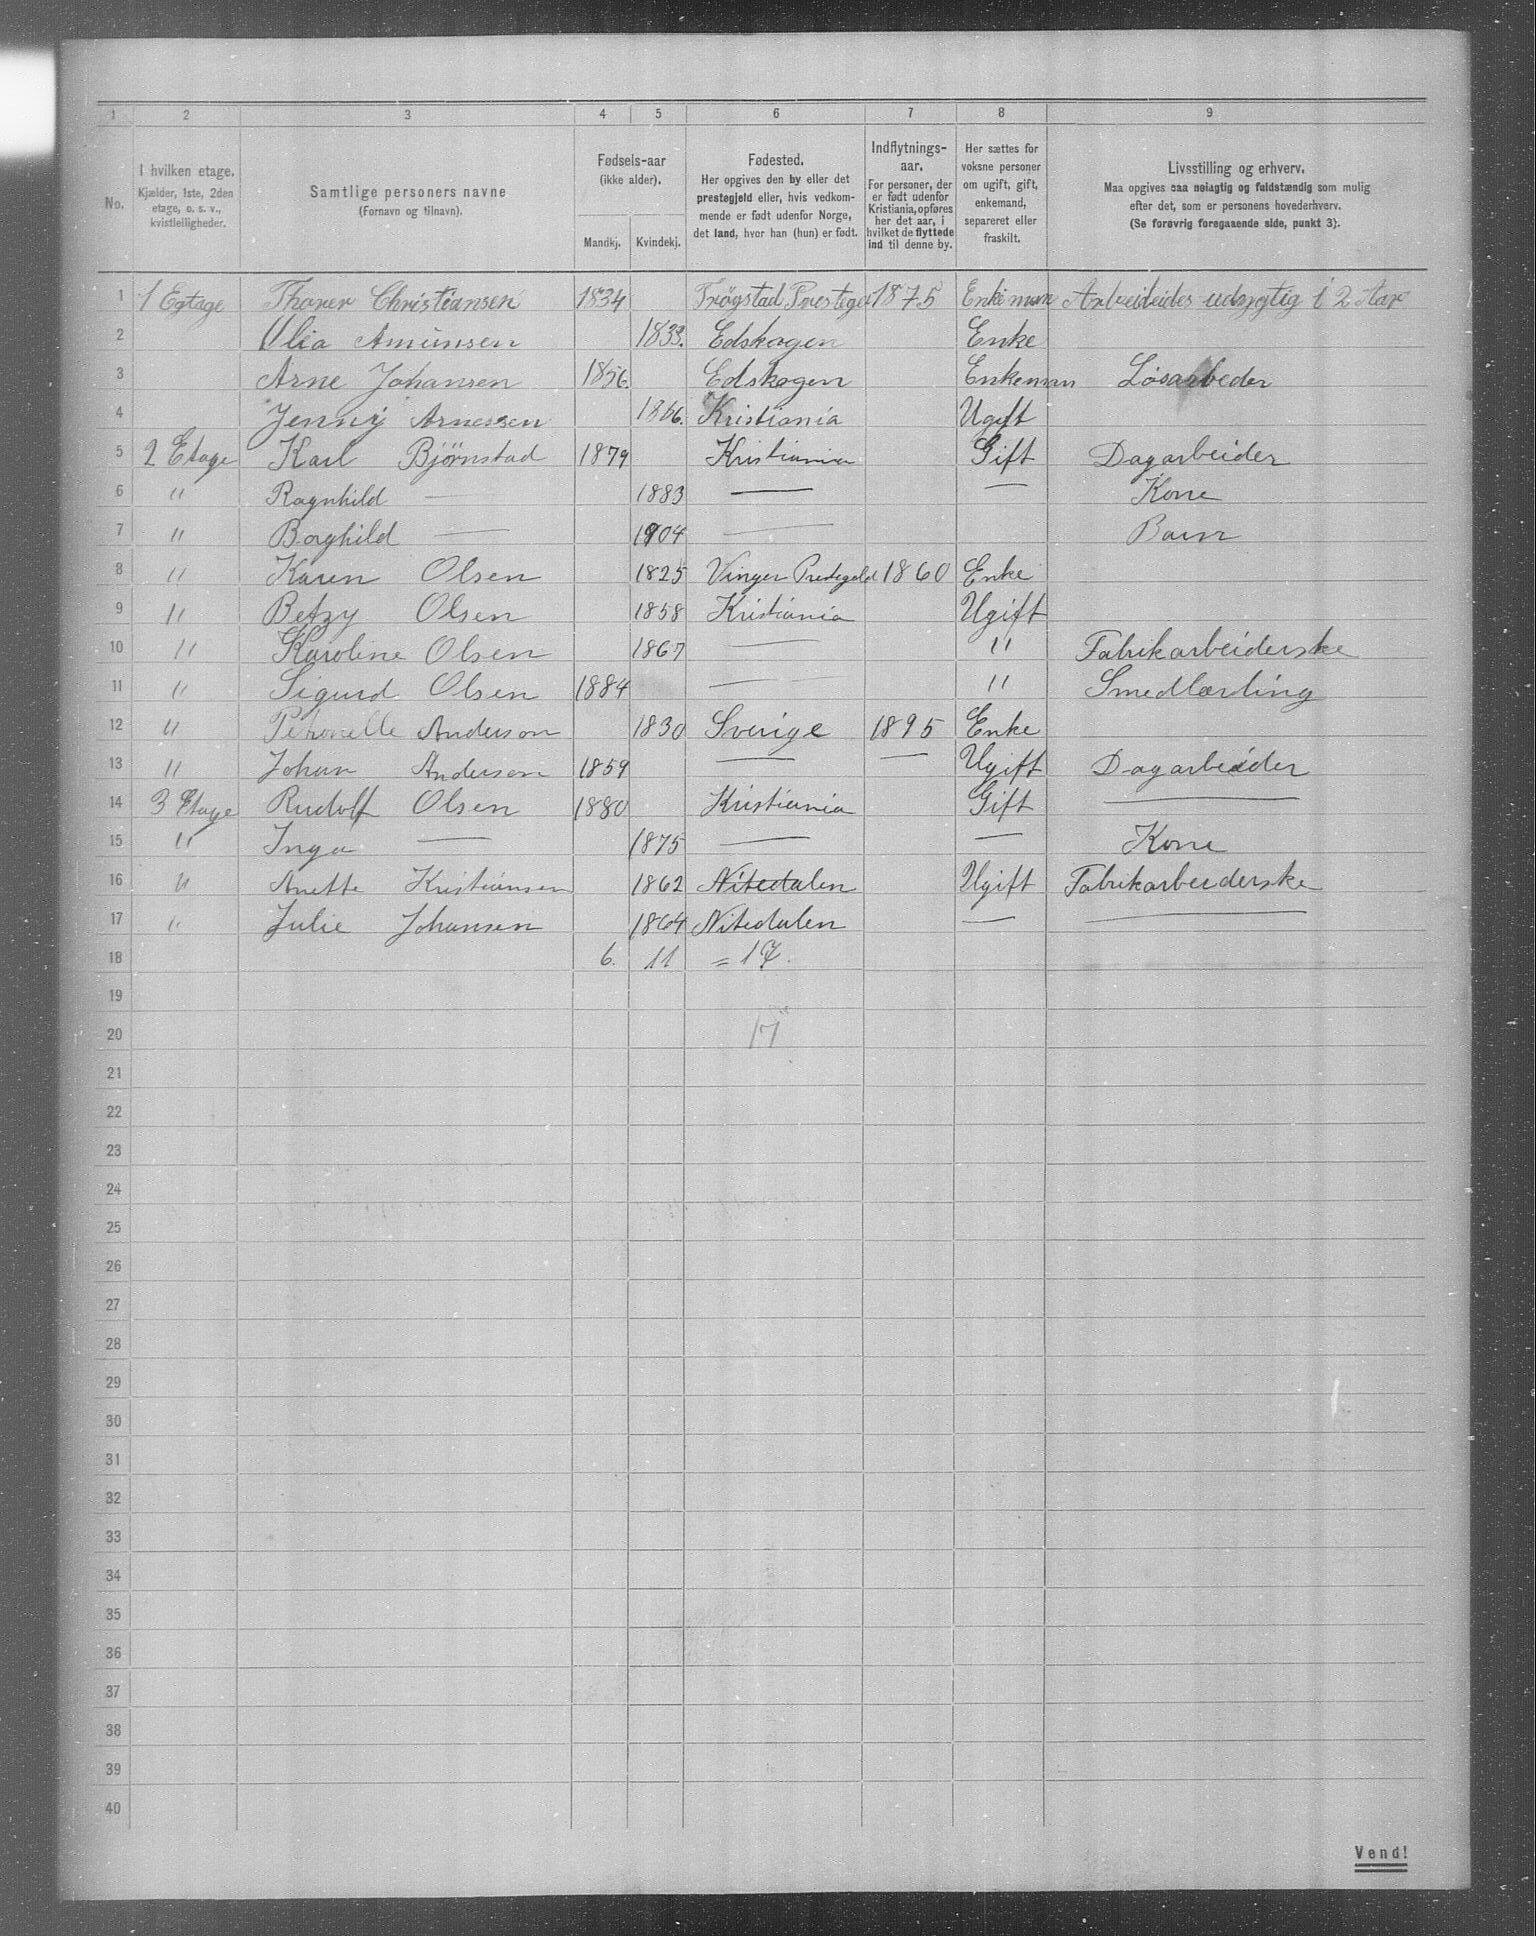 1 2 3 4 5 6 7 8 9
No. I hvilken etage. Kjælder, 1ste, 2den etage, o. s. v., kvistleiligheder. Samtlige personers navne (Fornavn og tilnavn). Fødsels-aar (ikke alder). Mandkj. Kvindekj. Fødested. Her opgives den by eller det prestegjeld eller, hvis vedkommende er født udenfor Norge, det land, hvor han (hun) er født. Indflytnings-aar. For personer, der er født udenfor Kristiania, opføres her det aar, i hvilket de flyttede ind til denne by. Her sættes for voksne personer om ugift, gift, enkemand, separeret eller fraskilt. Livsstilling og erhverv. Maa opgives saa nøiagtig og fuldstændig som mulig efter det, som er personens hovederhverv. (Se forøvrig foregaaende side, punkt 3).
1 1 Egtage Thorer Christiansen 1834 Trøgstad Prestege 1875 Enkeman Arbeideides udsygtig i 2 Aar
2 Olia Amunsen 1833. Edskogen Enke
3 Arne Johansen 1856 Edskogen Enkeman Løsarbeder
4 Jenny Arnessen 1866. Kristiania Ugift
5 2 Etage Karl Bjørnstad 1879 Kristiania Gift Dagarbeider
6 " Ragnhild — 1883 — — Kone
7 " Borghild — 1904 — Barn
8 " Karen Olsen 1825 Vinger Prestegeld 1860 Enke
9 " Betzy Olsen 1858 Kristiania Ugift
10 " Karoline Olsen 1867 — " Fabrikarbeiderske
11 " Sigurd Olsen 1884 — " Smedlærling
12 " Petronelle Anderson 1830 Sverige 1895 Enke
13 " Johan Anderson 1859 — — Ugift Dagarbeider
14 3 Etage Rudolf Olsen 1880 Kristiania Gift —
15 " Inga — 1875 — — Kone
16 " Anette Kristiansen 1862 Nitedalen Ugift Fabrikarbeiderske
17 " Julie Johansen 1864 Nitedalen — —
18 6. 11 = 17.
19
20 17
21
22
23
24
25
26
27
28
29
30
31
32
33
34
35
36
37
38
39
40
Vend!